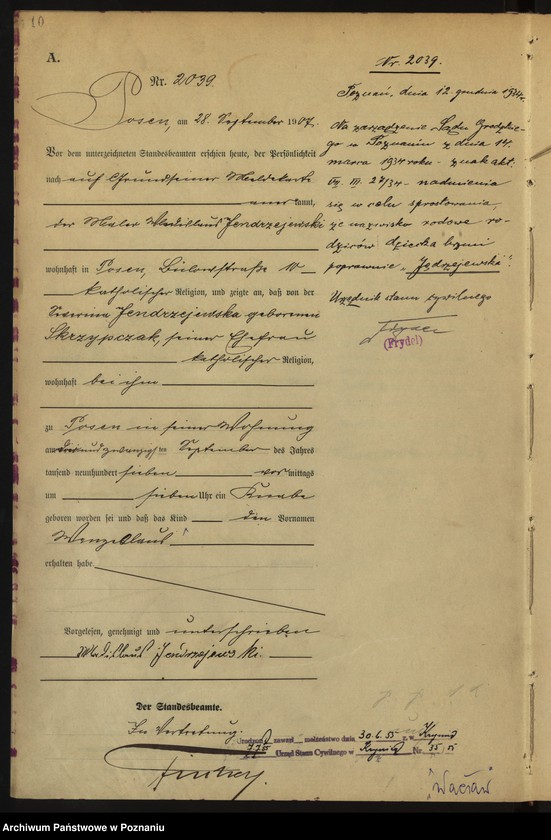 10
A.
Nr. 2039.
Posen, am 28. September 1907.
Vor dem unterzeichneten Standesbeamten erschien heute, der Persönlichkeit
nach auf Grund seiner Meldekarte
anerkannt,
der Maler Wladislaus Jendrzejewski
wohnhaft in Posen, Bülowstraße 10
katholischer Religion, und zeigte an, daß von der
Sewerina Jendrzejewska geborenen
Skrzypczak, seiner Ehefrau
katholischer Religion,
wohnhaft bei ihm
zu Posen in seiner Wohnung
am dreiundzwanzigsten September des Jahres
tausend neunhundert sieben vormittags
um sieben Uhr ein Knabe
geboren worden sei und daß das Kind den Vornamen
Wenzeslaus
erhalten habe.
Vorgelesen, genehmigt und unterschrieben
Wladislaus Jendrzejewski.
Der Standesbeamte.
In Vertretung:
Nr. 2039.
Poznań, dnia 12. grudnia 1934r.
Na zarządzenie Sądu Grodzkie-
go w Poznaniu z dnia 14.
marca 1934 roku - znak akt.
III. 27/34 - nadmienia
się w celu sprostowania,
że nazwisko rodowe ro-
dziców dziecka brzmi
poprawnie „Jędrzejewska".
Urzędnik stanu cywilnego
(Frydel)
zawarł małżeństwo dnia 30.6.55
Urząd Stanu Cywilnego w Nr. 35
"Wacław"
Archiwum Państwowe w Poznaniu